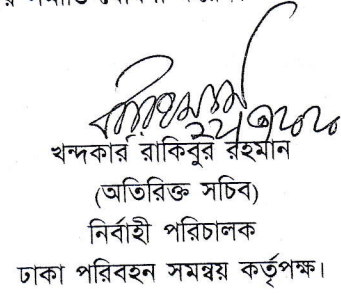 খন্দকার রাকিবুর রহমান
(অতিরিক্ত সচিব)
নির্বাহী পরিচালক
ঢাকা পরিবহন সমন্বয় কর্তৃপক্ষ।